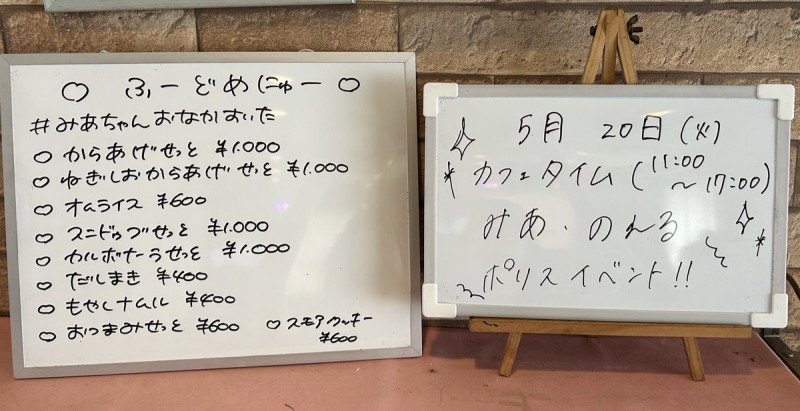 ○ ふーどめにゅー ○
#みあちゃんおなかすいた
○ からあげせっと ¥1.000
○ ねぎしおからあげせっと ¥1.000
○ オムライス ¥600
○ スンドゥブせっと ¥1.000
○ カルボナーラせっと ¥1.000
○ だしまき ¥400
○ もやしナムル ¥400
○ おつまみせっと ¥600
○ スモアクッキー
¥600
5月 20日 (火)
カフェタイム (11:00
～17:00)
みあ・のえる
ポリスイベント!!